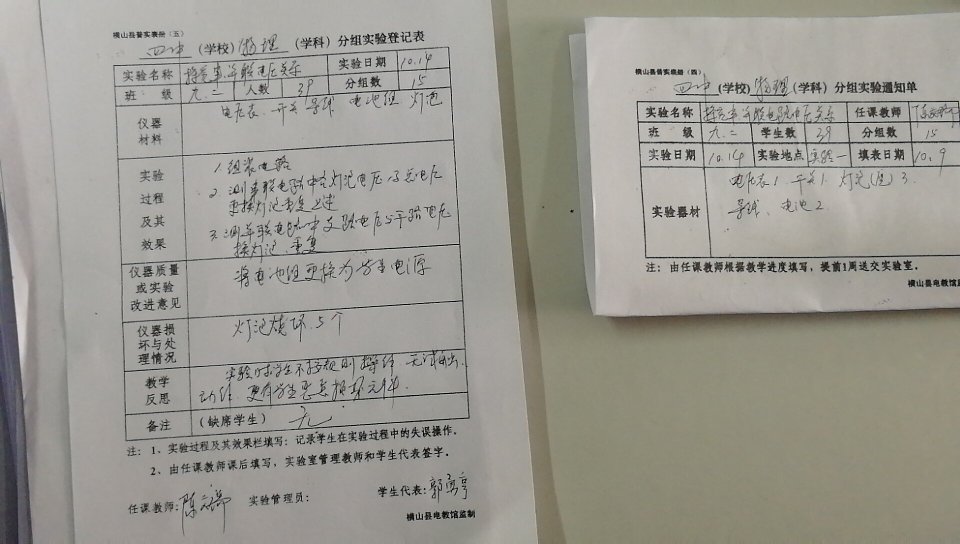 横山县普实表册（五）
四中（学校）物理（学科）分组实验登记表
实验名称 探究串并联电压关系 实验日期 10.14
班 级 九.二 人数 39 分组数 15
仪器材料 电压表、开关 导线 电池组 灯泡
实验过程及其效果
1. 组装电路
2. 测串联电路中各灯泡电压与总电压
更换灯泡重复上述
3. 测并联电路中支路电压与干路电压
换灯泡 重复
仪器质量或实验改进意见 将电池组更换为学生电源
仪器损坏与处理情况 灯泡烧坏 5个
教学反思 实验时学生不按规则操作
动作 更有学生恶意损坏元件
备注 （缺席学生） 无
注：1、实验过程及其效果栏填写：记录学生在实验过程中的失误操作。
2、由任课教师课后填写，实验室管理教师和学生代表签字。
任课教师： 实验管理员： 学生代表：
横山县电教馆监制
横山县普实表册（四）
四中（学校）物理（学科）分组实验通知单
实验名称 探究串并联电路电压关系 任课教师
班 级 九.二 学生数 39 分组数 15
实验日期 10.14 实验地点 实验一 填表日期 10.9
实验器材 电压表1 开关1 灯泡(座)3
导线、电池2
注：由任课教师根据教学进度填写，提前1周送交实验室。
横山县电教馆监